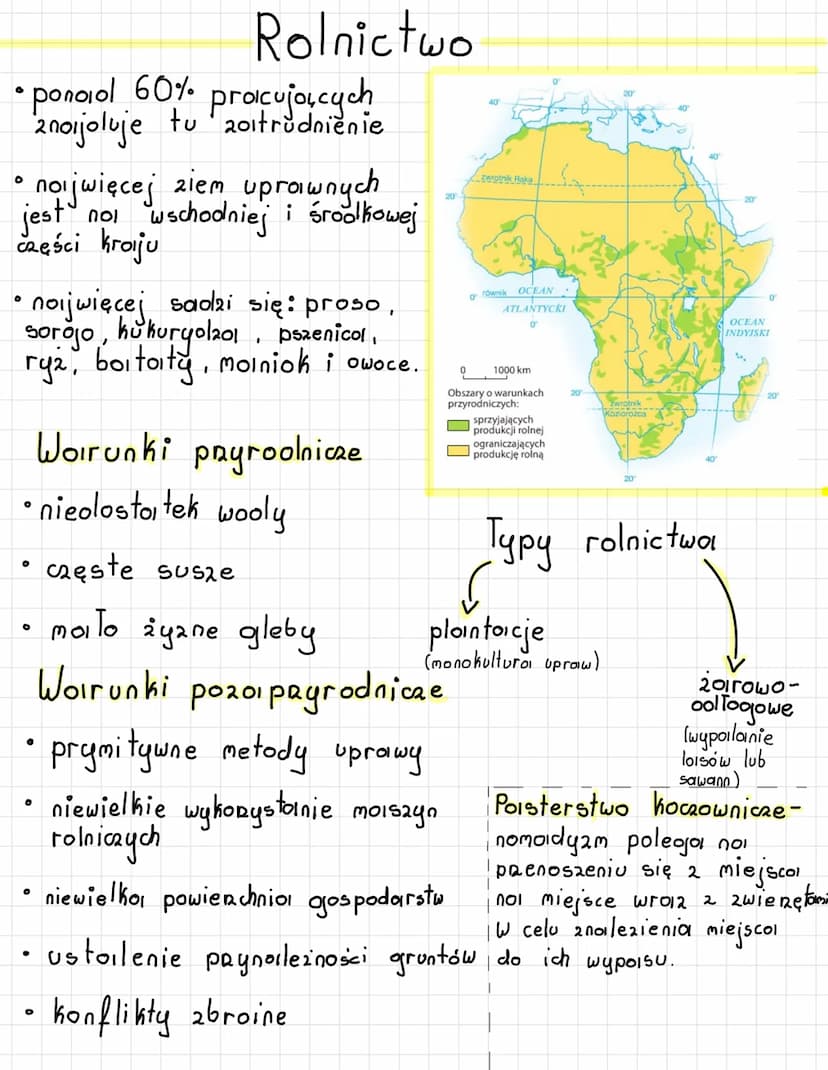 Rolnictwo
• ponad 60% pracujących
znajduje tu zatrudnienie
• najwięcej ziem uprawnych
jest na wschodniej i środkowej
części kraju
• najwięcej sadzi się: proso,
sorgo, kukurydza, pszenica,
ryż, bataty, maniok i owoce.
Warunki przyrodnicze
• niedostatek wody
• częste susze
• mało żyzne gleby
Warunki pozaprzyrodnicze
• prymitywne metody uprawy
• niewielkie wykorzystanie maszyn
rolniczych
• niewielka powierzchnia gospodarstw
• ustalenie przynależności gruntów
• konflikty zbrojne
0°
20°
40°
40°
40°
Zwrotnik Raka
20°
20°
0°
równik
OCEAN
ATLANTYCKI
0°
0°
OCEAN
INDYJSKI
0 1000 km
20°
20°
Zwrotnik
Koziorożca
40°
20°
Obszary o warunkach
przyrodniczych:
sprzyjających
produkcji rolnej
ograniczających
produkcję rolną
Typy rolnictwa
plantacje
(monokultura upraw)
żarowo-
odłogowe
(wypalanie
lasów lub
sawann)
Pasterstwo koczownicze-
nomadyzm polega na
przenoszeniu się z miejsca
na miejsce wraz z zwierzętami
W celu znalezienia miejsca
do ich wypasu.